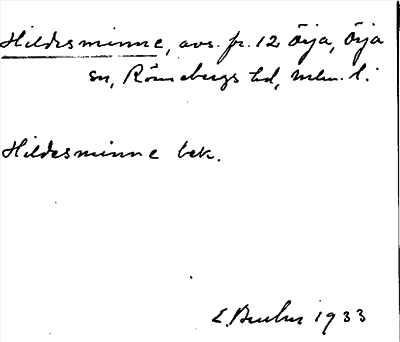 Hildesminne, avs. fr. 12 Öija, Öija
sn, Rönnebergs hd, Mlm. l.
Hildesminne bek.
E. 1933